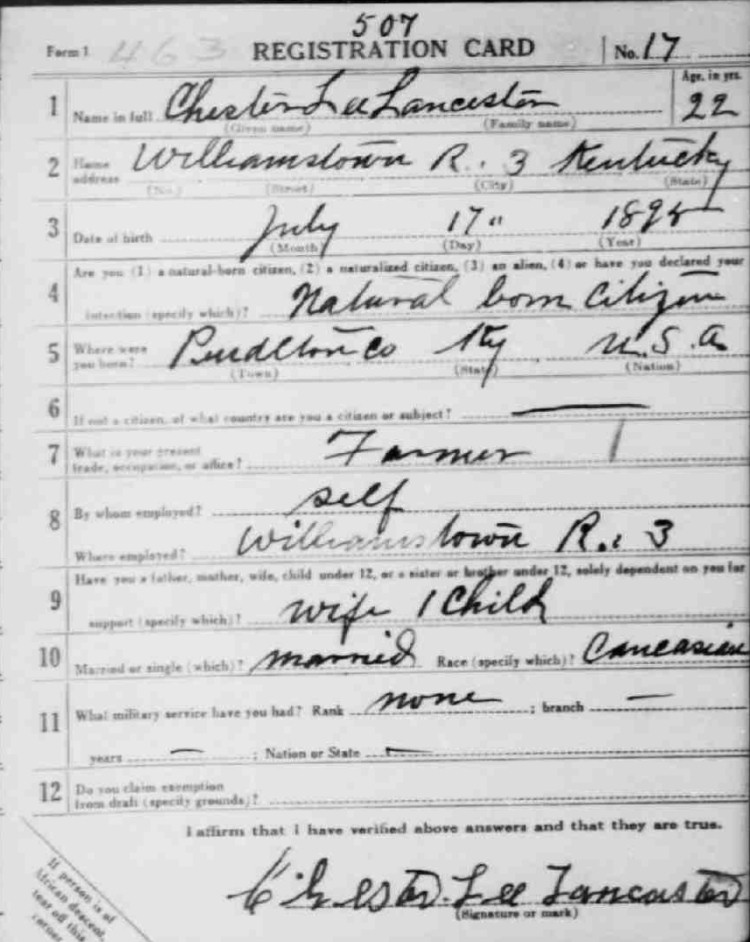 507
Form 1 463 REGISTRATION CARD No. 17
Age, in yrs.
1 Name in full Chester Lee Lancester 22
(Given name) (Family name)
2 Home address Williamstown R. 3 Kentucky
(No.) (Street) (City) (State)
3 Date of birth July 17" 1895
(Month) (Day) (Year)
Are you (1) a natural-born citizen, (2) a naturalized citizen, (3) an alien, (4) or have you declared your
4 intention (specify which)? Natural born Citizen
5 Where were you born? Pendleton Co Ky U.S.A
(Town) (State) (Nation)
6 If not a citizen, of what country are you a citizen or subject? —
7 What is your present trade, occupation, or office? Farmer
8 By whom employed? self
Where employed? Williamstown R. 3
Have you a father, mother, wife, child under 12, or a sister or brother under 12, solely dependent on you for
9 support (specify which)? wife 1 Child
10 Married or single (which)? married Race (specify which)? Caucasian
11 What military service have you had? Rank none ; branch —
years — ; Nation or State —
12 Do you claim exemption
from draft (specify grounds)?
I affirm that I have verified above answers and that they are true.
Chester Lee Lancaster
(Signature or mark)
If person is of
African descent,
tear off this
corner